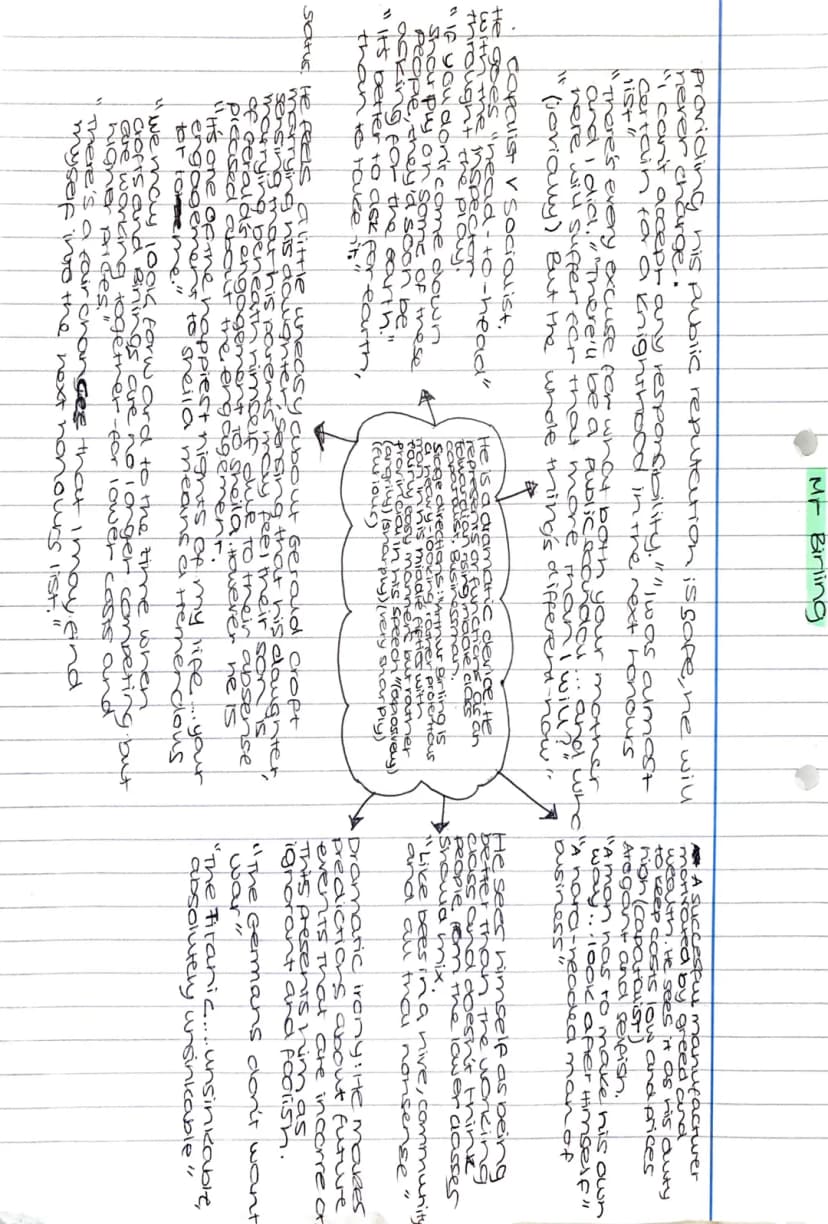 Mr Birling
Providing his public reputation is safe, he will
never change.
"I can't accept any responsibility." "I was almost
certain for a knighthood in the next honours
list"
"There's every excuse for what both your mother
and I did." "There'll be a public scandal... and who
here will suffer for that more than I will?"
"(jovially) But the whole thing's different now."
. Capitalist v Socialist.
He goes "head-to-head"
with the inspector
throught the play.
"If you don't come down
sharply on some of these
people, they'd soon be
asking for the earth."
"It's better to ask for earth,
than to take it."
He is a dramatic device. He
represents and functions as an
towards an rising middle class
capatalist businessman.
Stage directions: "Arthur Birling is
a heavy-looking, rather protentious
man in his middle fifties with
fairly easy manners but rather
provincial in his speech" (explosively)
(angrily) (sharply) (very sharply)
(furious)
He feels a little uneasy about Gerald Croft
marrying his daughter, sensing that his daughter,
sensing that his parents may feel their son is
marrying beneath himself due to their absense
of Gerald's engagement to Sheila. However he is
pleased about the engagement.
"It's one of the happiest nights of my life... your
engagement to Sheila means a tremendous
lot to me."
"We may look forward to the time when
Crofts and Birlings are no longer competing but
are working together - for lower costs and
higher prices."
"There's a fair chance that I may find
myself into the next honours list."
A successful manufacturer
motivated by greed and
wealth. He sees it as his duty
to keep costs low and prices
high (capatalist)
Aregant and selfish.
"A man has to make his own
way... look after himself"
"A hard-headed man of
business"
He sees himself as being
better than the working
class and doesn't think
people from the lower classes
should mix.
"Like bees in a hive, community
and all that nonsense"
Dramatic irony: He makes
predictions about future
events that are incorrect
This presents him as
ignorant and foolish.
"The Germans don't want
war"
"The Titanic..... unsinkable,
absolutely unsinkable"